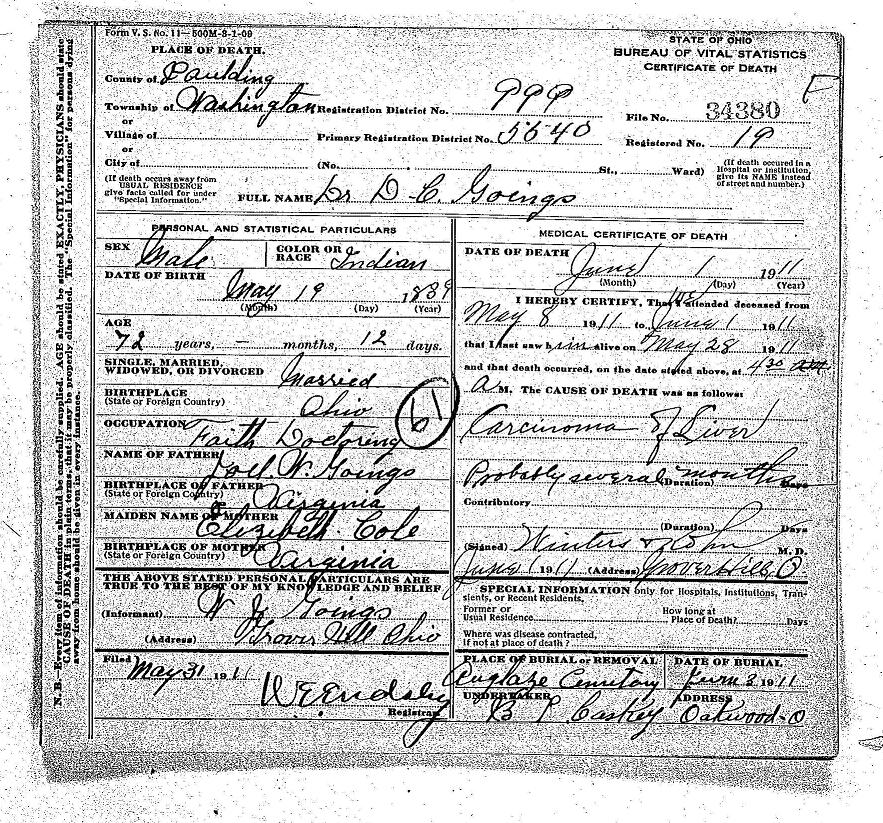 Form V. S. No. 11—500M-8-1-09
PLACE OF DEATH.
County of Paulding
Township of Washington
or
Village of
or
City of
(If death occurs away from
USUAL RESIDENCE
give facts called for under
"Special Information.")
STATE OF OHIO
BUREAU OF VITAL STATISTICS
CERTIFICATE OF DEATH
Registration District No. 999
File No. 34380
Primary Registration District No. 5640
Registered No. 19
(No. St., Ward)
(If death occured in a
Hospital or institution,
give its NAME instead
of street and number.)
FULL NAME Dr D. C. Goings
PERSONAL AND STATISTICAL PARTICULARS
SEX Male
COLOR OR
RACE Indian
DATE OF BIRTH
May 19 1839
(Month) (Day) (Year)
AGE
72 years, — months, 12 days.
SINGLE, MARRIED,
WIDOWED, OR DIVORCED Married
BIRTHPLACE
(State or Foreign Country) Ohio
OCCUPATION Faith Doctoring
NAME OF FATHER Joel W. Goings
BIRTHPLACE OF FATHER
(State or Foreign Country) Virginia
MAIDEN NAME OF MOTHER Elizebeth Cole
BIRTHPLACE OF MOTHER
(State or Foreign Country) Virginia
THE ABOVE STATED PERSONAL PARTICULARS ARE
TRUE TO THE BEST OF MY KNOWLEDGE AND BELIEF
(Informant) W J Goings
(Address) Grover Hill Ohio
Filed May 31 1911
W E Endsley
Registrar
MEDICAL CERTIFICATE OF DEATH
DATE OF DEATH
June 1 1911
(Month) (Day) (Year)
I HEREBY CERTIFY, That we attended deceased from
May 8 1911 to June 1 1911
that I last saw him alive on May 28 1911
and that death occurred, on the date stated above, at 4 30 am
a M. The CAUSE OF DEATH was as follows:
Carcinoma of Liver
Probably several months
(Duration) Days
Contributory
(Duration) Days
(Signed) Winters & M. D.
June 1 1911 (Address) Grover Hill, O
SPECIAL INFORMATION only for Hospitals, Institutions, Tran-
sients, or Recent Residents.
Former or
Usual Residence
How long at
Place of Death? Days
Where was disease contracted,
if not at place of death?
PLACE OF BURIAL or REMOVAL
Auglaze Cemetory
DATE OF BURIAL
June 3 1911
UNDERTAKER
B T Caskey
ADDRESS
Oakwood-O
61
N. B.—Every item of information should be carefully supplied. AGE should be stated EXACTLY, PHYSICIANS should state
CAUSE OF DEATH in plain terms, that it may be properly classified. The "Special Information" for persons dying
away from home should be given in every instance.